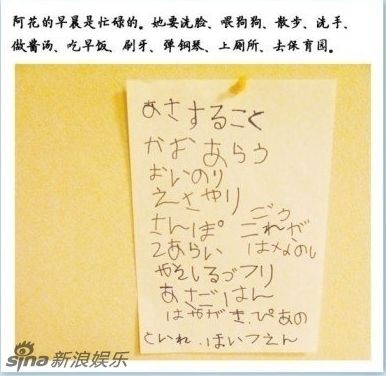 阿花的早晨是忙碌的。她要洗脸、喂狗狗、散步、洗手、
做酱汤、吃早饭、刷牙、弹钢琴、上厕所、去保育园。
あさすること
かお あらう
おいのり
えさやり
さんぽ
てあらい
ごう
これが
はなのし
みそしるづくり
あさごはん
はやがき、ぴあの
といれ、ほいつえん
sina新浪娱乐